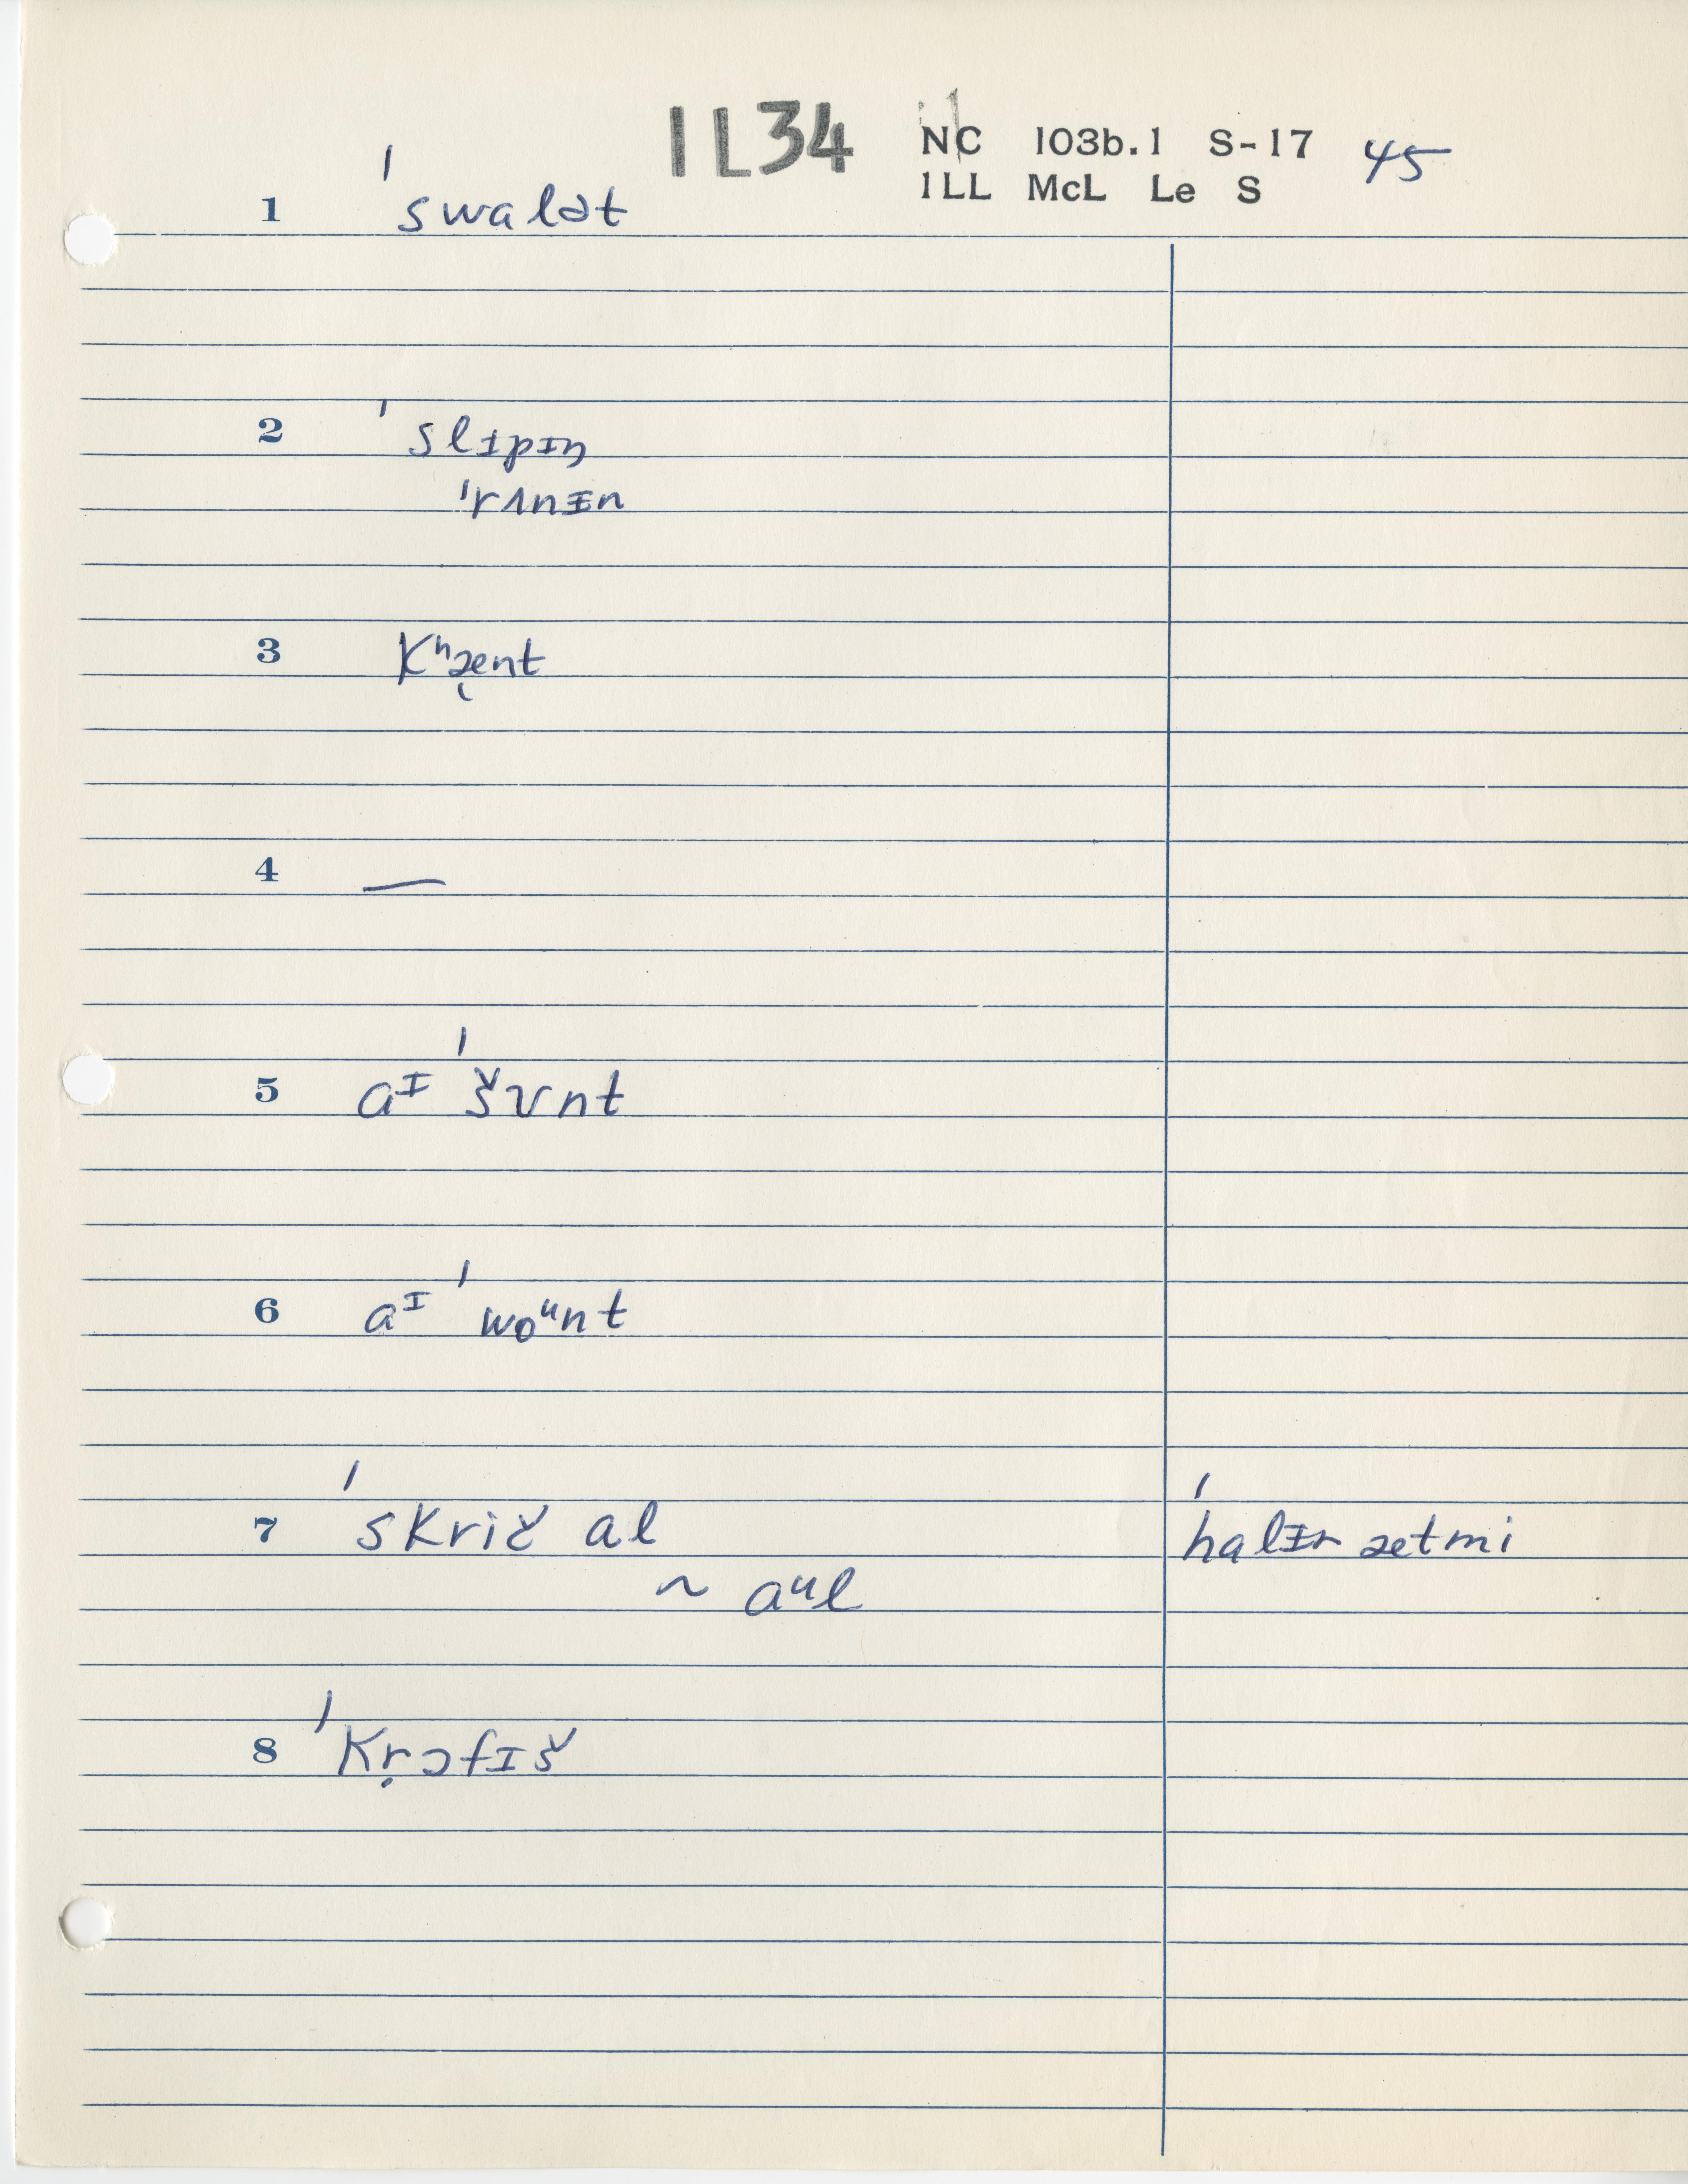 IL34 NC 103b.1 S-17 45
ILL McL Le S
1 ˈswalət
2 ˈslɪpɪŋ
ˈrʌnɪn
3 Kʰæ̨nt
4 —
5 aᴵ ˈšʊnt
6 aᴵ ˈwoᵘnt
7 ˈskrič al ˈhalɪn ætmi
~ aᵘl
8 ˈkṛɔfɪš